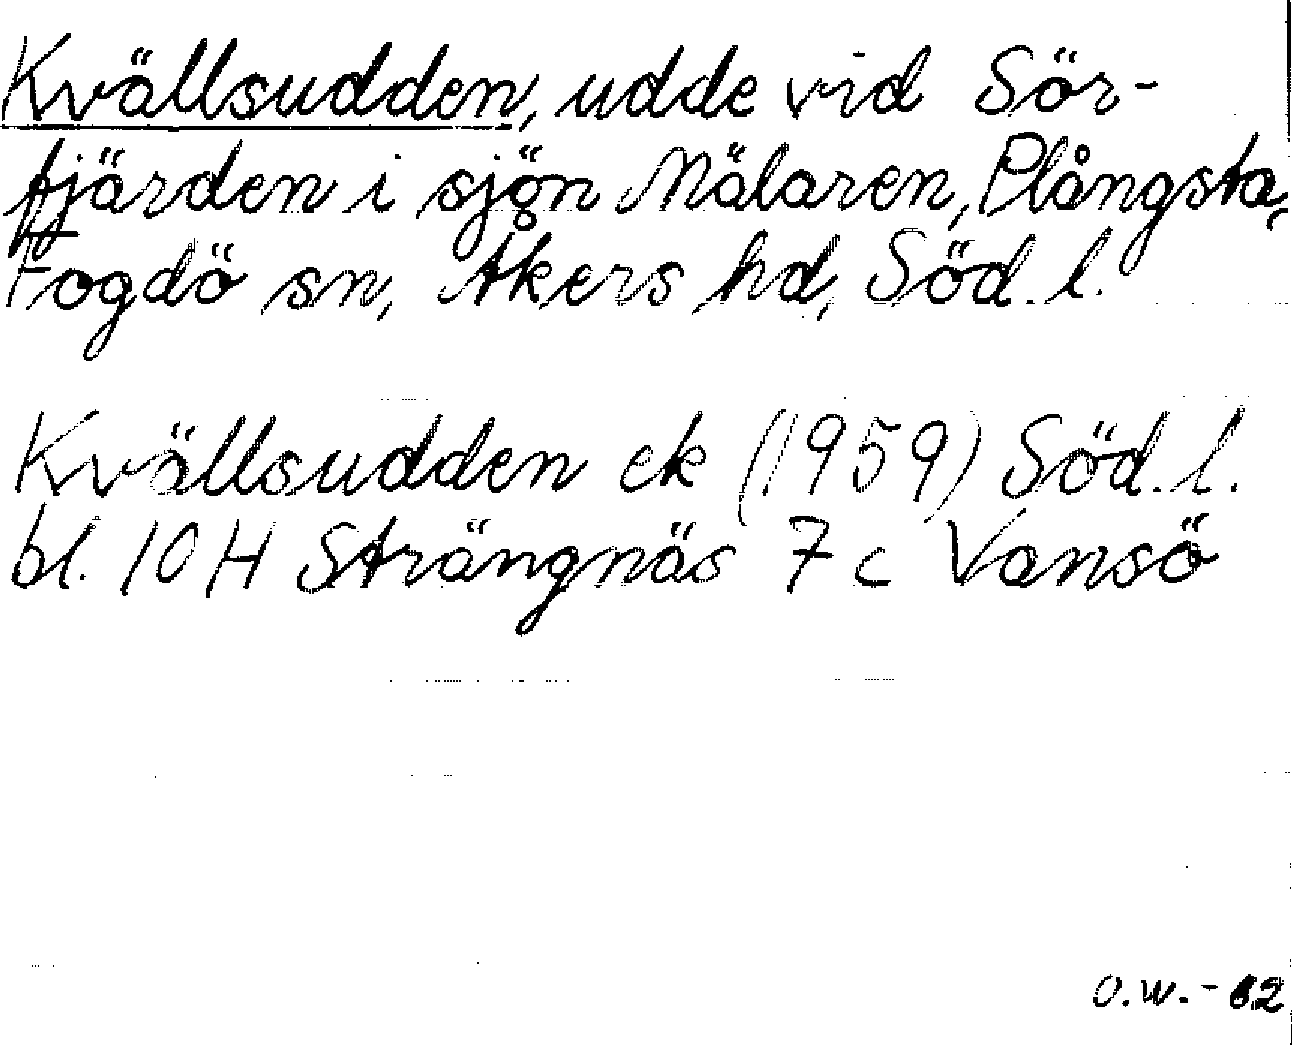 Kvällsudden, udde vid Sör-
fjärden i sjön Mälaren, Plångsta,
Fogdö sn, Åkers hd, Söd. l.
Kvällsudden ek (1959) Söd. l.
bl. 10 H Strängnäs 7 c Vansö
O.W.-62